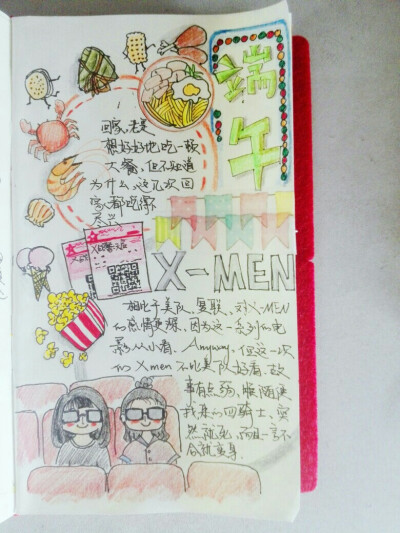 端午
回家,老是
想好好地吃一顿
大餐,但不知道
为什么,这几次回
家都吃得不
尽兴
X-MEN
相比于美队、复联,对X-MEN
的感情更深,因为这一系列的电
影从小看,Anyway,但这一次
的Xmen不比美队好看,故
事有点弱,
我来的四骑士,突
然就死,而且一言不
合就变身.